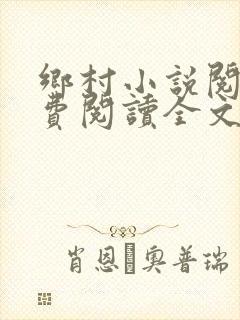 鄉村小說閱
費閱讀全文
肖恩·奧普瑞